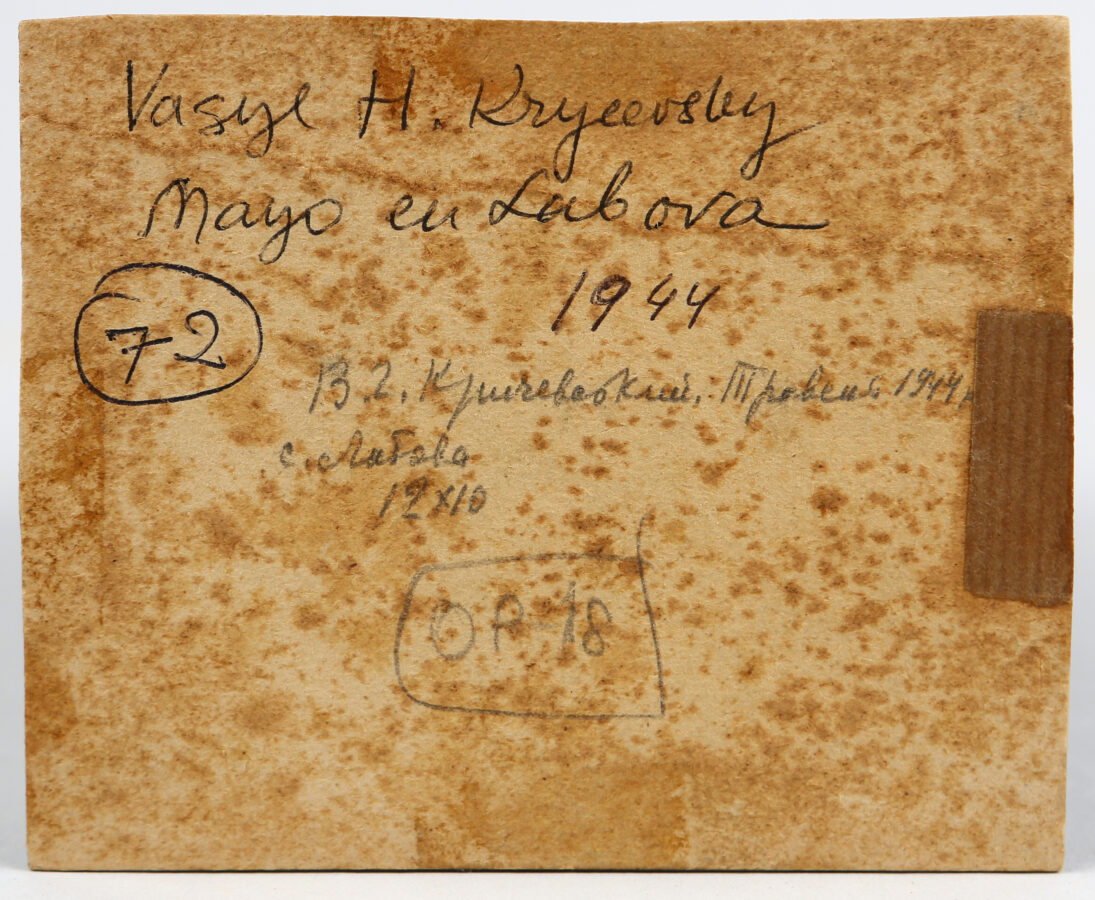 Vasyl H. Krycevsky
Mayo en Labova
1944
72
В.Г. Кричевський. Травень 1944р
с. Лабова
12x10
OP-18